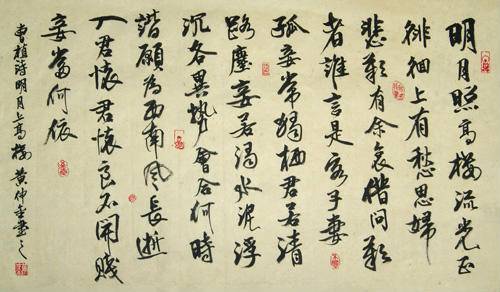 明月照高楼流光正
徘徊上有愁思婦
悲歎有余哀借问歎
者谁言是客子妻
孤妾常獨栖君若清
路塵妾若濁水泥浮
沉各異势會合何時
諧願为西南风長逝
入君懷君懷良不開賤
妾當何依
曹植诗明月上高楼 黄仲書之